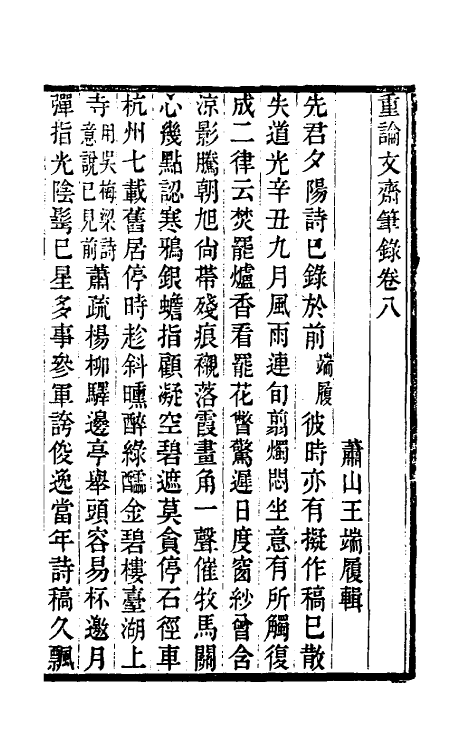 重論文齋筆錄卷八
蕭山王端履輯
先君夕陽詩已錄於前端履彼時亦有擬作稿已散
失道光辛丑九月風雨連旬翦燭悶坐意有所觸復
成二律云焚罷爐香看罷花瞥驚遲日度窗紗曾含
涼影騰朝旭尙帶殘痕襯落霞畫角一聲催牧馬關
心幾點認寒鴉銀蟾指顧凝空碧遮莫貪停石徑車
杭州七載舊居停時趁斜曛醉綠醽金碧樓臺湖上
寺用吳梅梁詩意說已見前蕭疏楊柳驛邊亭舉頭容易杯邀月
彈指光陰鬂已星多事參軍誇俊逸當年詩稿久飄